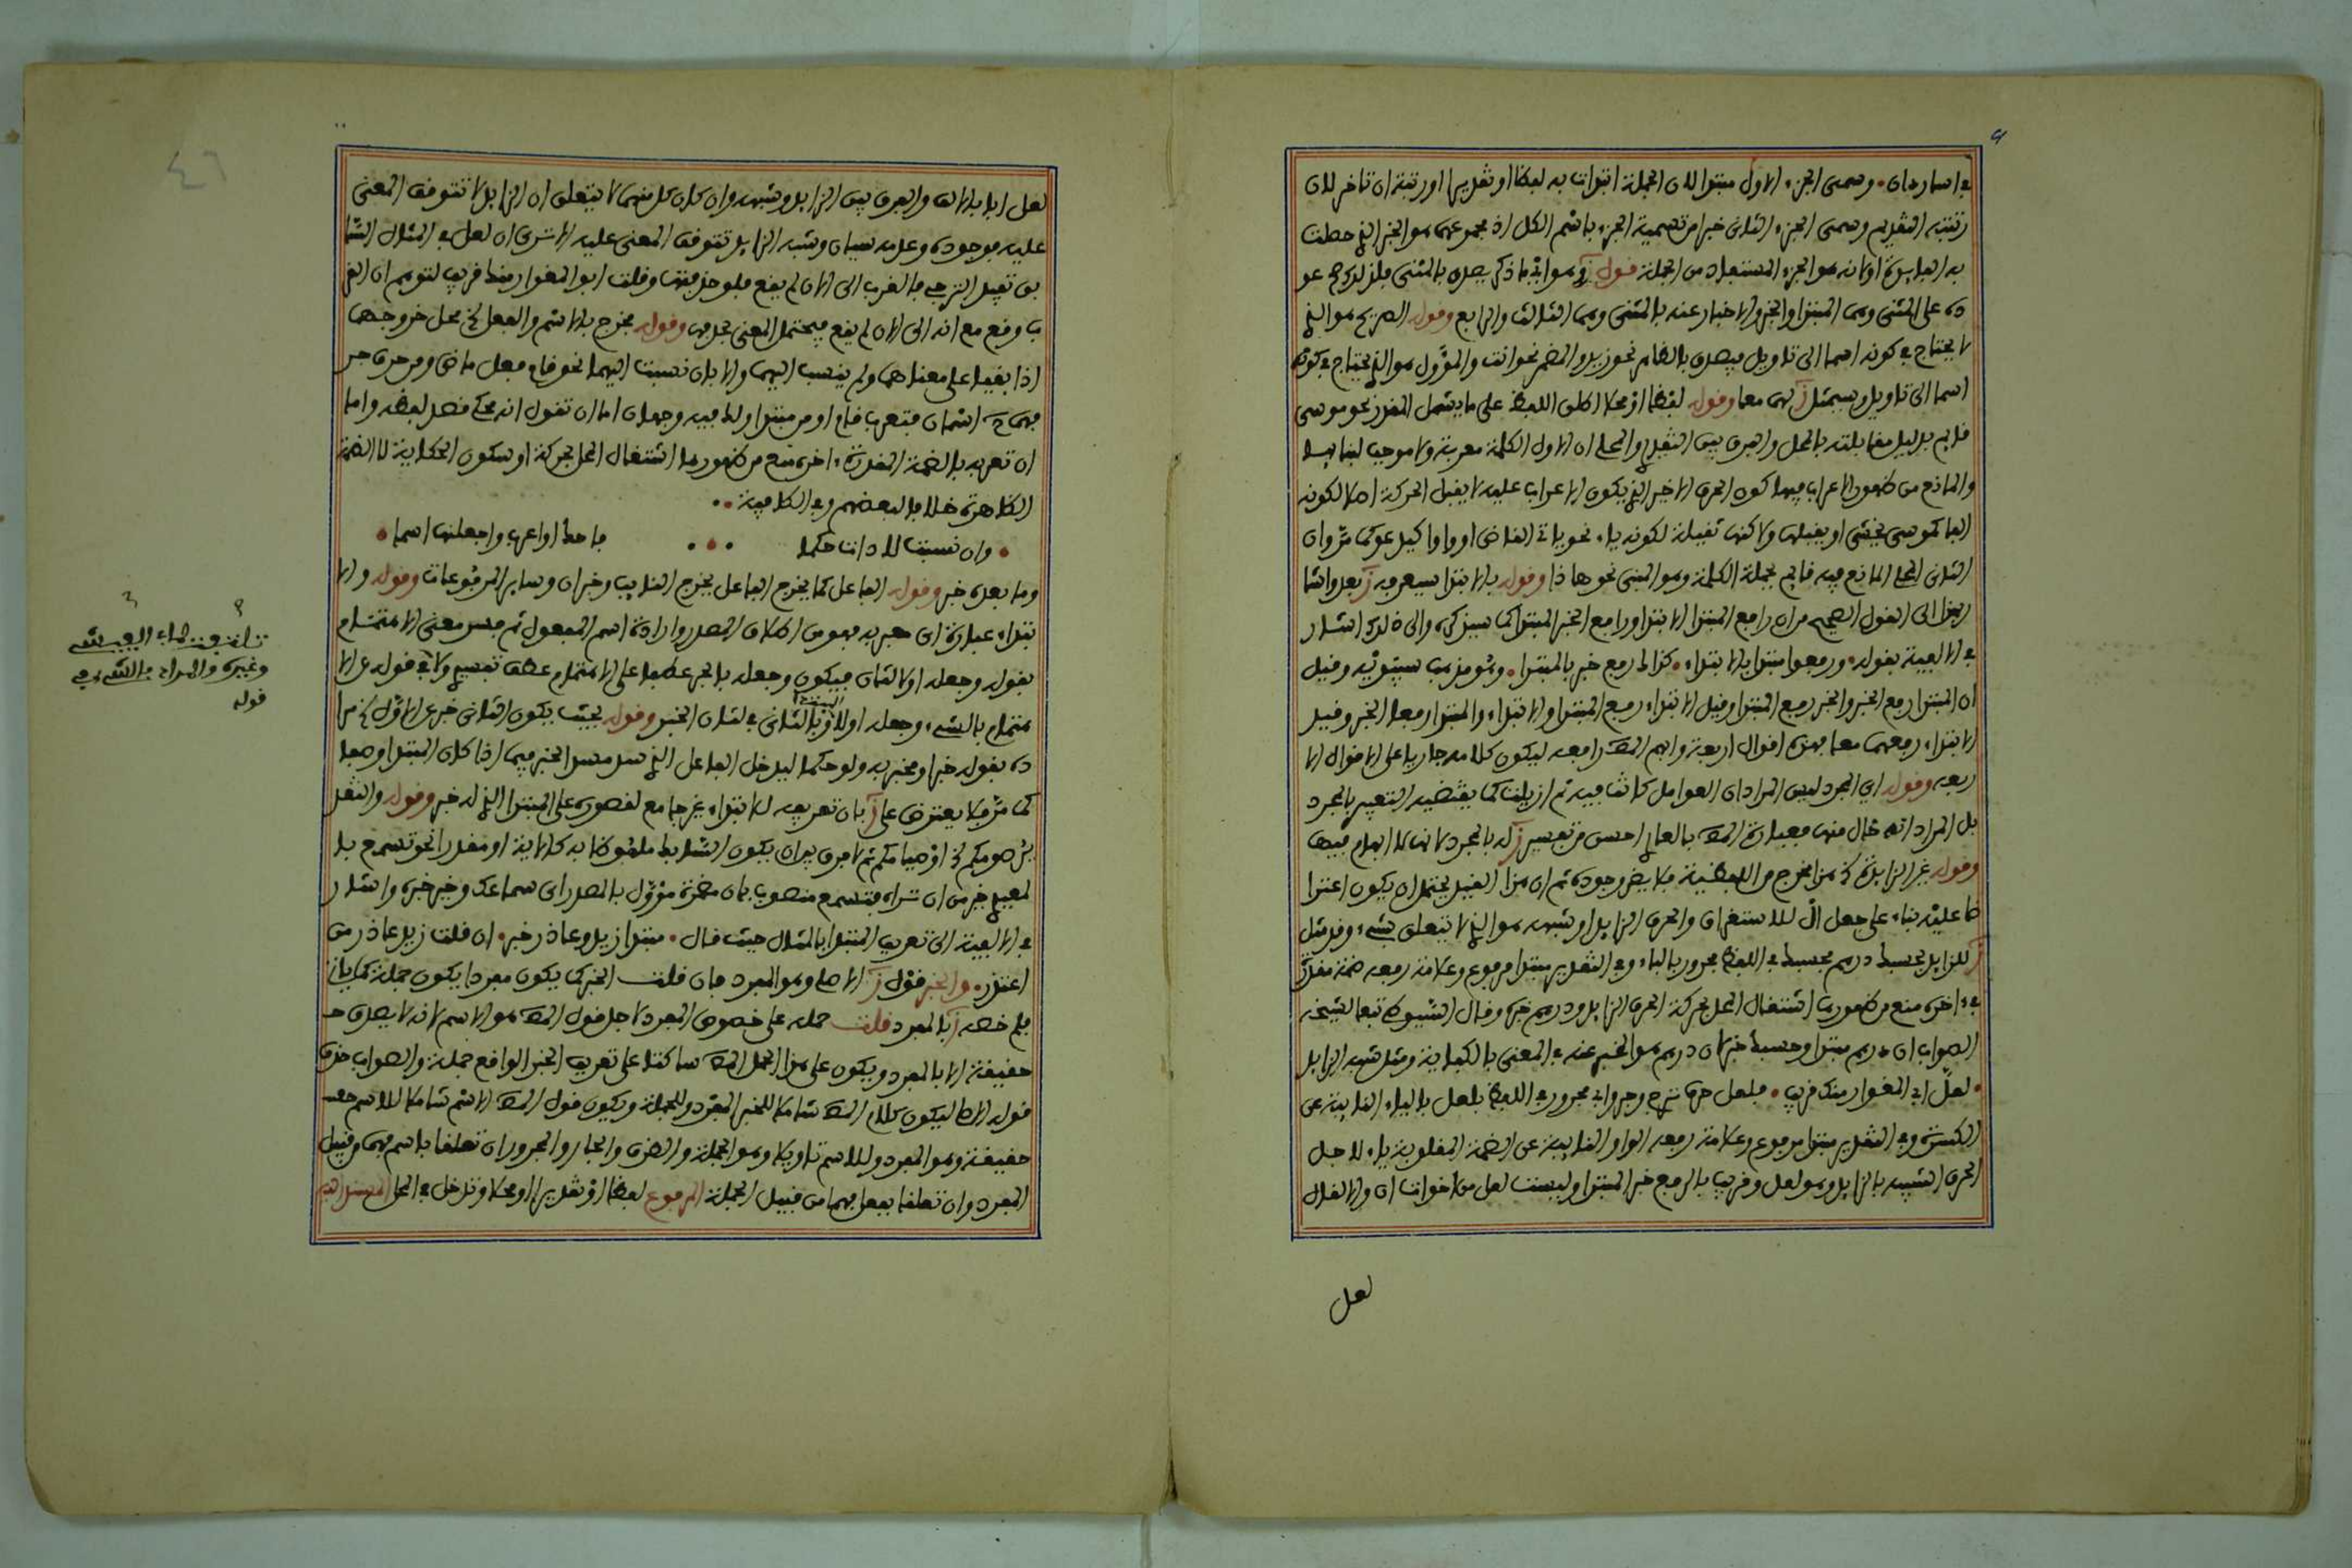 وسمى الجزء الاول مبتدا لان الجملة ابتدات به لفظا او تقديرا او رتبة ان تاخر لان
رتبته التقديم وسمى الجزء الثانى خبرا من تسمية الجزء باسم الكل اذ مجموعهما هو الخبر الذي حصلت
به الفايدة او لانه هو الجزء المستفاد من الجملة قول
على المثنى وهى المبتدا والخبر والاخبار عنه بالمثنى وهى الثالث والرابع وقوله الصريح هو الذي
لا يحتاج في كونه اسما الى تاويل فيصدق بالظاهر نحو زيد والمضمر نحو انت والمؤول هو الذي يحتاج في كونه
اسما الى تاويل وسيمثل ز لهما معا وقوله لفظا او محلا اطلق اللفظ على ما يشمل المقدر نحو موسى
قايم بدليل مقابلته بالمحل والفرق بين التقديري والمحلي ان الاول الكلمة معربة ولا موجب لبنايها
والمانع من ظهور الاعراب فيها كون الحرف الاخير الذي يكون الاعراب عليه لا يقبل الحركة اصلا لكونه
الفا كموسى يخشى او يقبلها ولاكنها ثقيلة لكونه ياء نحو ياتي القاضى او واوا كيدعو كما مر وان
الثانى المحلي المانع فيه قايم بجملة الكلمة وهو المبني نحو هاذا وقوله بالابتدا سيعرفه ز بعد واشا
ربهذا الى القول الصحيح من ان رافع المبتدا الابتدا ورافع الخبر المبتدا كما سيذكره والى ذلك اشار
في الالفية بقوله ورفعوا مبتدا بالابتداء كذاك رفع خبر بالمبتدا وهو مذهب سيبويه وقيل
ان المبتدا رفع الخبر والخبر رفع المبتدا وقيل الابتداء رفع المبتدا والابتداء والمبتدا رفعا الخبر وقيل
الابتداء رفعهما معا فهذه اقوال اربعة وابهم المص رافعه ليكون كلامه جاريا على الاقوال الا
ربعة وقوله اي المجرد ليس المراد ان العوامل كانت فيه ثم ازيلت كما يقتضيه التعبير بالمجرد
بل المراد انه خال منها فعبارة المص بالعاري احسن من تفسير ز له بالمجرد لانها لا ايهام فيها
وقوله غير الزايدة
ضا عليه بناء على جعل ال للاستغراق والحرف الزايد او شبهه هو الذي لا يتعلق بشيء وقد مثل
ز للزايد بحسبك درهم فحسبك في اللفظ مجرور بالباء وفي التقدير مبتدا مرفوع وعلامة رفعه ضمة مقدرة
في ءاخره منع من ظهورها اشتغال المحل بحركة الحرف الزايد ودرهم خبره وقال السيوطي تبعا لشيخه
الصواب ان درهم مبتدا وحسبك خبر لان درهم هو المخبر عنه في المعنى بالكفاية ومثل شبه الزايد
لعل ابي المغوار منك قريب فلعل حرف ترج وجر وابي مجرور في اللفظ بلعل بالياء النايبة عن
الكسرة وفي التقدير مبتدا مرفوع وعلامة رفعه الواو النايبة عن الضمة المقلوبة ياء لاجل
الحرف الشبيه بالزايد وهو لعل وقريب بالرفع خبر المبتدا وليست لعل من اخوات ان والا لقال
لعل
لعل ابا بالالف والفرق بين الزايد وشبهه وان كان كل منهما لا يتعلق ان الزايد لا تتوقف المعنى
عليه فوجوده وعدمه سيان وشبه الزايد تتوقف المعنى عليه الا ترى ان لعل في المثال السا
بق تفيد الترجي بالقرب الى الان لم يقع فلو حذفتها وقلت ابو المغوار منك قريب لتوهم ان القر
ب وقع مع انه الى الان لم يقع فيختل المعنى بحذفها وقوله مخرج بالاسم والفعل
اذا بقيا على معناهما ولم ينسب اليهما والا بان نسبت اليهما نحو قام فعل ماض ومن حرف جر
فهي ح اسمان فتعرب قام او من مبتدا ولك فيه وجهان اما ان تقول انه محكي قصد لفظه واما
ان تعربه بالضمة المقدرة في ءاخره منع من ظهورها اشتغال المحل بحركة او سكون الحكاية لا الضمة
الظاهرة خلافا لبعضهم وفي الكافية
وان نسبت لاداة حكما فاحك او اعرب واجعلنها اسما
وما بعده خبر وقوله الفاعل كما يخرج الفاعل يخرج النايب وخبر ان وساير المرفوعات وقوله والا
بتداء عبارة اى معبر به فهو من اطلاق المصدر وارادة اسم المفعول ثم فسر معنى الاهتمام
بقوله وجعله اولا لثان فيكون وجعله بالجر عطفا على الاهتمام عطف تفسير
هتمام بالشيء وجعله اولا لثانى في شان الخبر وقوله بحيث يكون الثانى خبر عن الاول
بقوله خبرا ومخبر به ولو حكما ليدخل الفاعل الذي سد مسد الخبر فيما اذا كان المبتدا وصفا
كما مر فلا يعترض على ز بان تعريفه للابتداء غير جامع لقصوره على المبتدا الذي له خبر وقوله والتقد
ير صومكم اي او صيامكم ثم لا فرق بين ان يكون السابك ملفوظا به كالاية او مقدرا نحو تسمع با
لمعيدي خير من ان تراه فتسمع منصوب بان مضمرة مؤول بالمصدر اى سماعك وخير خبره واشار
في الالفية الى تعريف المبتدا بالمثال حيث قال مبتدا زيد وعاذر خبر ان قلت زيد عاذر من
اعتذر والخبر قول ز الاصل وهو المفرد فان قلت الخبر كما يكون مفردا يكون جملة كما ياتي
فلم خصه ز بالمفرد قلت حمله على خصوص المفرد لاجل قول المص هو الاسم لانه لا يصدق
حقيقة الا بالمفرد ويكون على هذا الحمل المص ساكتا على تعريف الخبر الواقع جملة والصواب حذف
قوله الاصل ليكون كلام المص شاملا للخبر المفرد وللجملة ويكون قول المص الاسم شاملا للاسم
حقيقة وهو المفرد وللاسم تاويلا وهو الجملة والظرف والجار والمجرور ان تعلقا باسم فهما من قبيل
المفرد وان تعلقا بفعل فهما من قبيل الجملة المرفوع لفظا او تقديرا او محلا وتدخل في المحل المسند اليه
وغيره والمراد بالشيء في
قوله